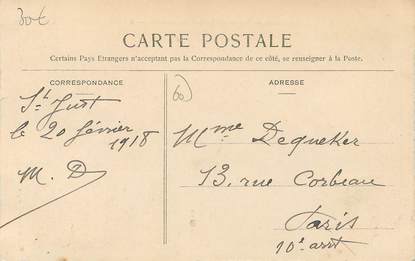 30€
CARTE POSTALE
Certains Pays Etrangers n'acceptant pas la Correspondance de ce côté, se renseigner à la Poste.
CORRESPONDANCE
60
ADRESSE
St Just
le 20 février
1918
M. D
Mme Dequeker
13, rue Corbeau
Paris
10e arrt